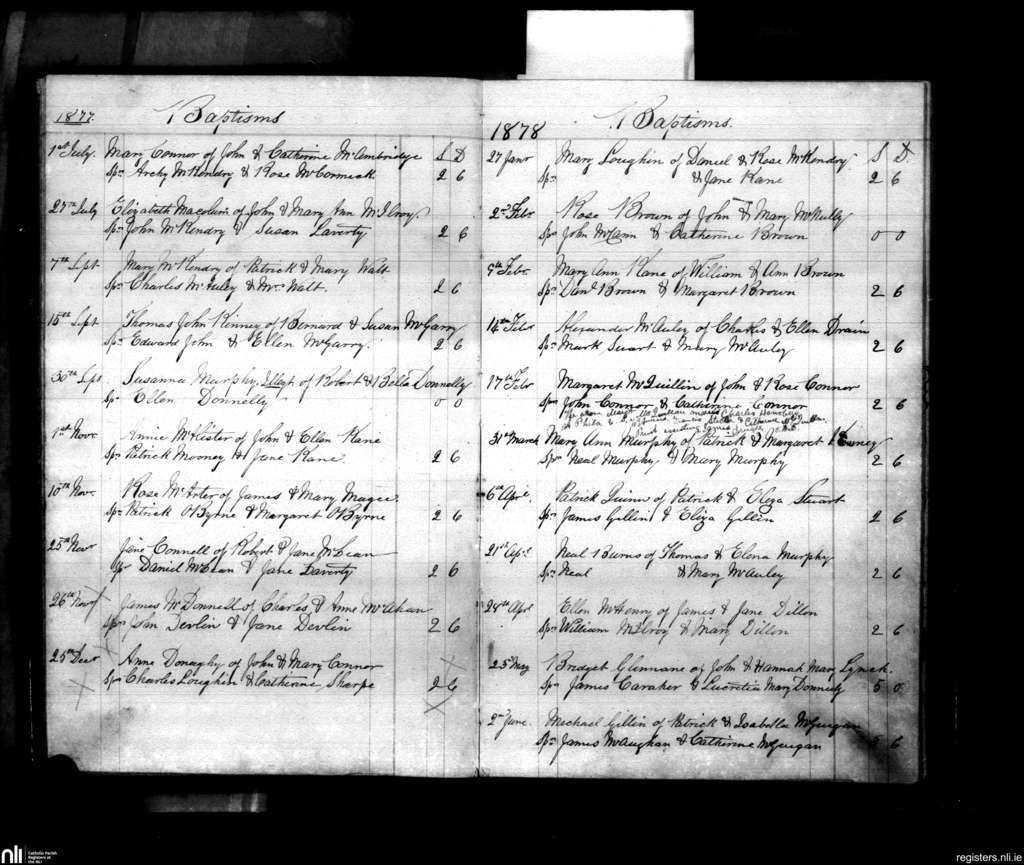 1877 Baptisms
1st July. Mary Connor of John & Catherine McAmbridge S D
Spr Archy McKendry & Rose McCormick 2 6
27th July Elizabeth of John & Mary Ann McIlroy
Spr John McKendry & Susan Laverty 2 6
7th Sept Mary McKendry of Patrick & Mary Watt
Spr Charles McAuley & Mrs Watt. 2 6
Sept Thomas John Kinney of Bernard & Susan McGarry
Spr Edward John & Ellen McGarry. 2 6
30th Sept Susanna Murphy, Illegt. of Robert & Bella Donnelly
Spr Ellen Donnelly 0 0
1st Novr. Annie McAlister of John & Ellen Kane
Spr Patrick Mooney & Jane Kane. 2 6
10th Nov. Rose McArter of James & Mary Magee.
Spr Patrick O'Byrne & Margaret O'Byrne 2 6
25th Novr Jane Connell of Robert & Jane McLean
Spr Daniel McLean & Jane Laverty 2 6
26th Novr James McDonnell of Charles & Anne
Spr Dan Devlin & Jane Devlin 2 6
25th Decr Anne Donaghy of John & Mary Connor
Spr Charles Loughin & Catherine Sharpe 2 6
1878 Baptisms.
27 Janr Mary Loughin of Daniel & Rose McKendry. S D.
Spr & Jane Kane 2 6
2nd Febr Rose Brown of John & Mary
Spr John McCann & Catherine Brown 0 0
9th Febr. Mary Ann Kane of William & Ann Brown
Spr Danl Brown & Margaret Brown 2 6
14th Febr Alexander McAuley of Charles & Ellen Drain
Spr Mark Stuart & Mary McAuley 2 6
17th Febr Margaret McQuillin of John & Rose Connor
Spr John Connor & Catherine Connor 2 6
The above married Charles
31st March Mary Ann Murphy of Patrick & Margaret
Spr Neal Murphy & Mary Murphy 2 6
6th April. Patrick Quinn of Patrick & Eliza Stuart
Spr James Gillin & Eliza Gillin 2 6
21st Apl. Neal Burns of Thomas & Elena Murphy
Spr Neal & Mary McAuley 2 6
28th Apl Ellen McHenry of James & Jane Dillon
Spr William McIlroy & Mary Dillon 2 6
25th May Bridget Glinnane of John & Hannah Mary Lynch.
Spr James Caraher & Lucretia Mary Donnelly 5 0
2nd June. Michael Gillin of Patrick & Isabella McGuigan
Spr James McAughan & Catherine McGuigan 6
nli Catholic Parish
Registers at
the NLI
registers.nli.ie